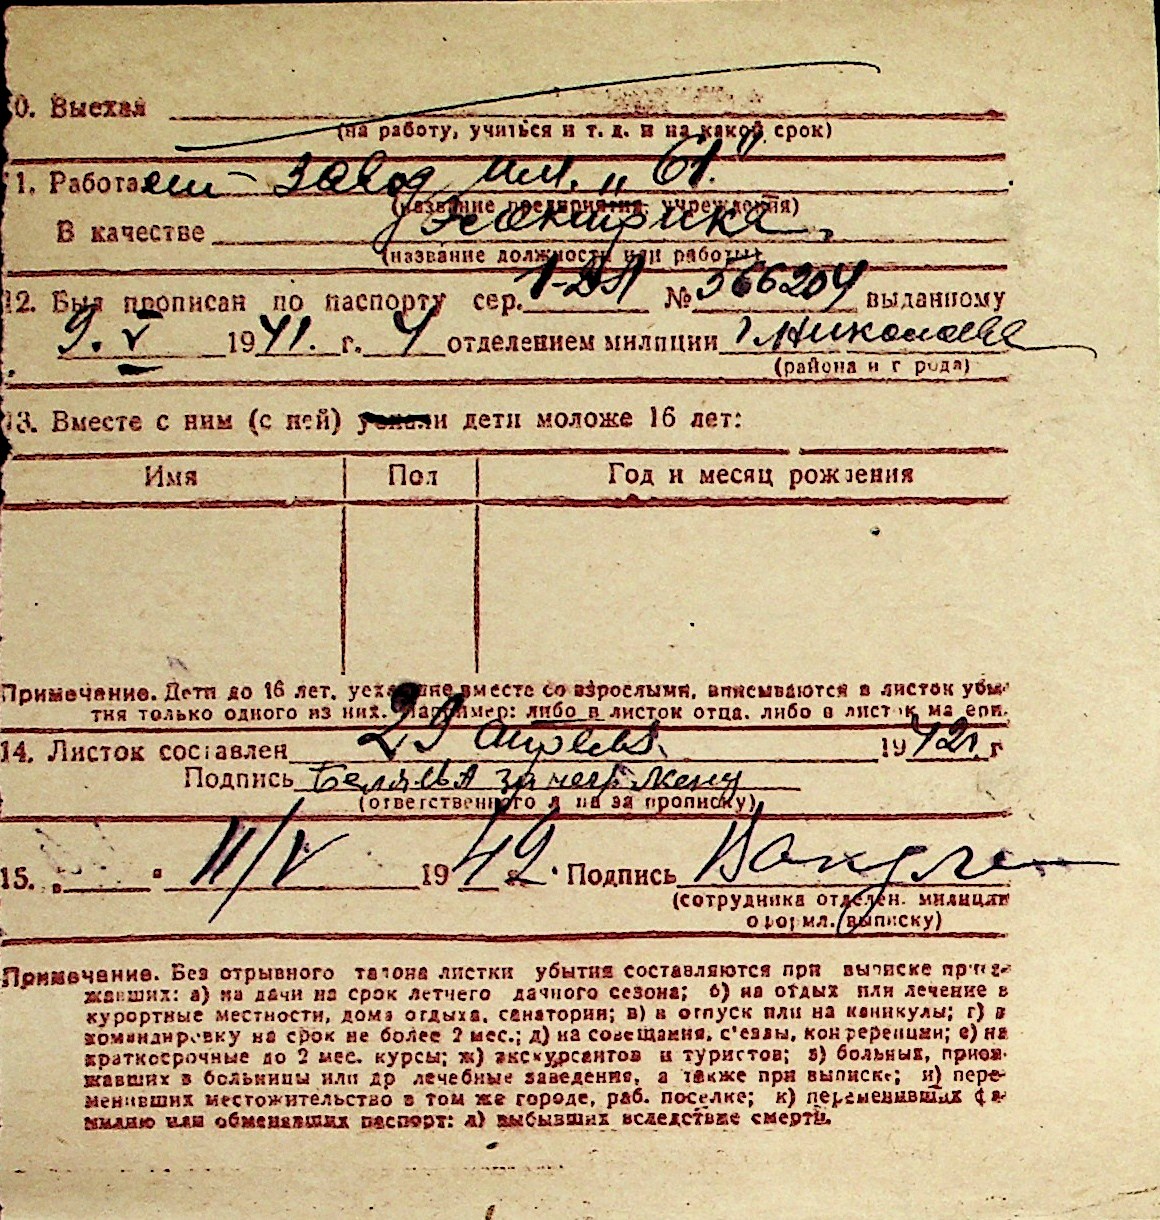 0. Выехал
(на работу, учиться и т. д. и на какой срок)
11. Работает - Завод им. „61"
(название предприятия, учреждения)
В качестве
(название должности или работы)
12. Был прописан по паспорту сер. № 566204 выданному
9. V 1941. г. 4 отделением милиции г. Николаева
(района и города)
13. Вместе с ним (с ней) уехали дети моложе 16 лет:
Имя Пол Год и месяц рождения
Примечание. Дети до 16 лет, уехавшие вместе со взрослыми, вписываются в листок убы-
тия только одного из них. Например: либо в листок отца, либо в листок матери.
14. Листок составлен 29 апреля 1942 г
Подпись
(ответственного лица за прописку)
15. „ " 11/V 1942 . Подпись
(сотрудника отделен. милиции
оформл. выписку)
Примечание. Без отрывного талона листки убытия составляются при выписке приез-
жавших: а) на дачи на срок летнего дачного сезона; б) на отдых или лечение в
курортные местности, дома отдыха, санатории; в) в отпуск или на каникулы; г) в
командировку на срок не более 2 мес.; д) на совещания, с'езды, конференции; е) на
краткосрочные до 2 мес. курсы; ж) экскурсантов и туристов; з) больных, приез-
жавших в больницы или др лечебные заведения, а также при выписке; и) пере-
менивших местожительство в том же городе, раб. поселке; к) переменивших фа-
милию или обменявших паспорт; л) выбывших вследствие смерти.